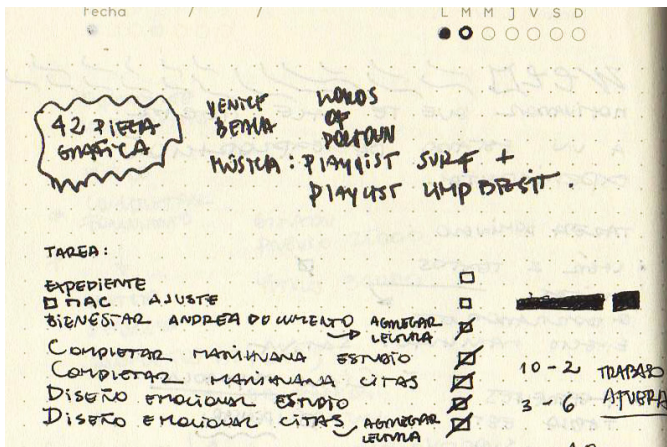 Fecha / /
L M M J V S D
42 PIEZA
GRAFICA
VENICE
BEACH
LORDS
OF
DOGTOWN
MÚSICA: PLAYLIST SURF +
PLAYLIST LIMP BIZKIT.
TAREA:
EXPEDIENTE
MAC AJUSTE
BIENESTAR ANDREA DOCUMENTO → AGREGAR
LECTURA
COMPLETAR MARIHUANA ESTUDIO
COMPLETAR MARIHUANA CITAS
DISEÑO EMOCIONAL ESTUDIO
DISEÑO EMOCIONAL CITAS AGREGAR
LECTURA
10-2 TRABAJO
3-6 AFUERA